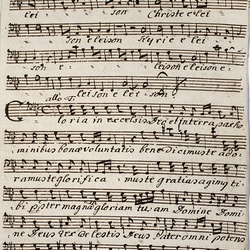 lei son Christe elei
son eleison Kyrie elei
son e leison eleisone
leisone lei son
allo
Gloria in excelsis Deo et in terra pax ho
minibus bonae voluntatis bene dicimus te ado
ramus te glorifica mus te gratias agimus ti
bi propter magnam gloriam tuam Domine Domi
ne Deus Rex coelestis Deus Pater omni poten